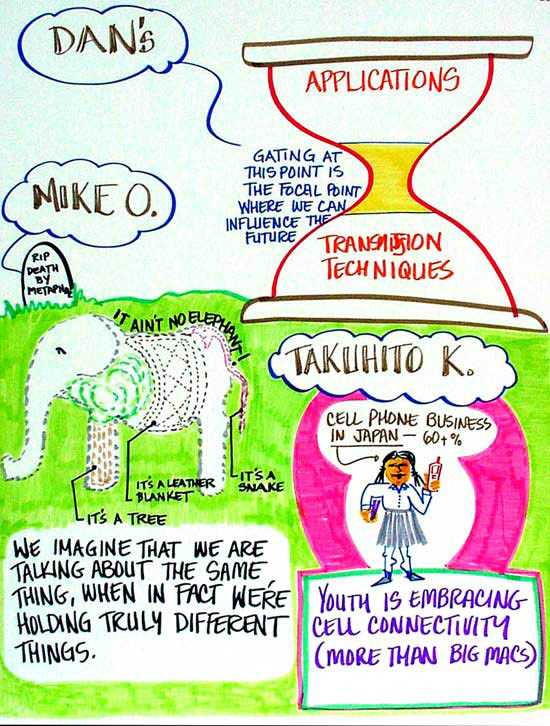 DAN's
APPLICATIONS
GATING AT
THIS POINT IS
THE FOCAL POINT
WHERE WE CAN
INFLUENCE THE
FUTURE
TRANSMISSION
TECHNIQUES
MIKE O.
RIP
DEATH
BY
METAPHOR
IT AIN'T NO ELEPHANT!
IT'S A LEATHER
BLANKET
IT'S A
SNAKE
IT'S A TREE
WE IMAGINE THAT WE ARE
TALKING ABOUT THE SAME
THING, WHEN IN FACT WE'RE
HOLDING TRULY DIFFERENT
THINGS.
TAKUHITO K.
CELL PHONE BUSINESS
IN JAPAN — 60+%
YOUTH IS EMBRACING
CELL CONNECTIVITY
(MORE THAN BIG MACS)